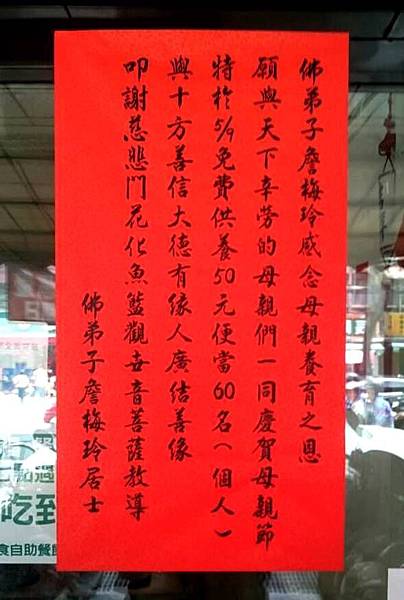 佛弟子詹梅玲感念母親養育之恩
願與天下辛勞的母親們一同慶賀母親節
特於5/9免費供養50元便當60名(個人)
與十方善信大德有緣人廣結善緣
叩謝慈悲門花化魚籃觀世音菩薩教導
佛弟子詹梅玲居士
吃到
食自助餐